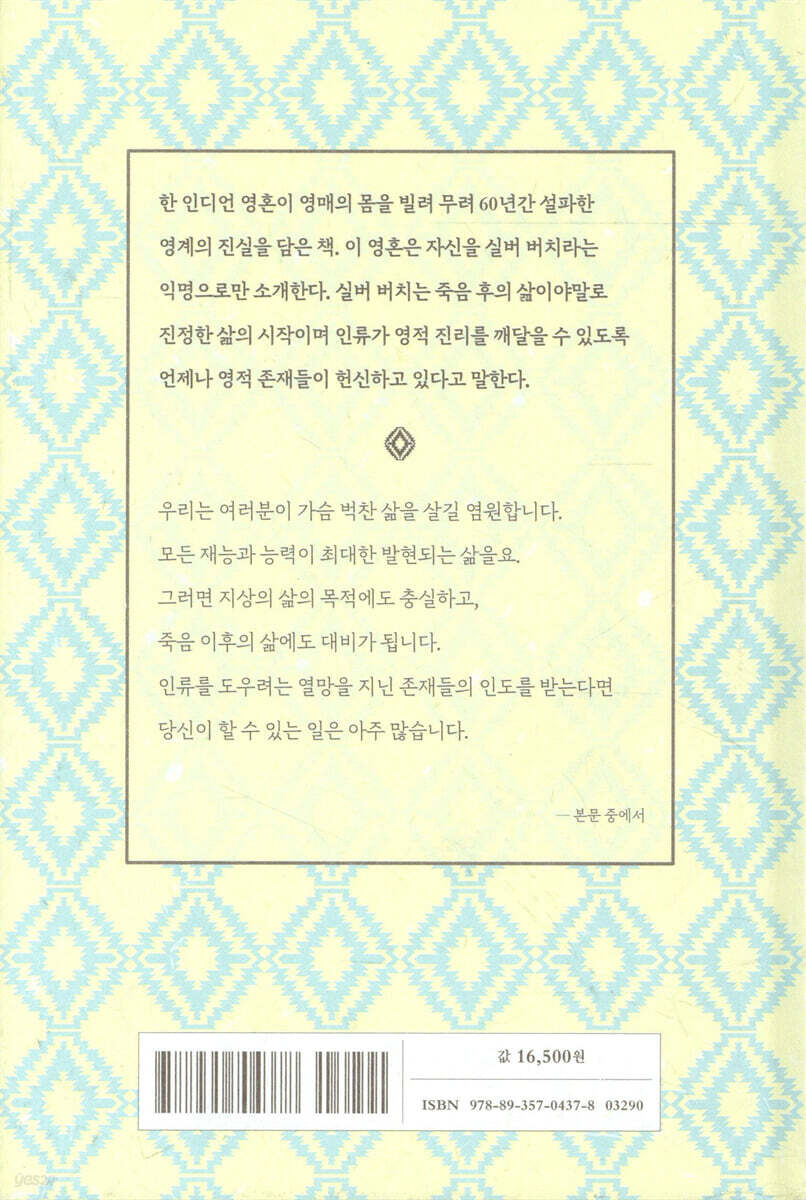 한 인디언 영혼이 영매의 몸을 빌려 무려 60년간 설파한
영계의 진실을 담은 책. 이 영혼은 자신을 실버 버치라는
익명으로만 소개한다. 실버 버치는 죽음 후의 삶이야말로
진정한 삶의 시작이며 인류가 영적 진리를 깨달을 수 있도록
언제나 영적 존재들이 헌신하고 있다고 말한다.
우리는 여러분이 가슴 벅찬 삶을 살길 염원합니다.
모든 재능과 능력이 최대한 발현되는 삶을요.
그러면 지상의 삶의 목적에도 충실하고,
죽음 이후의 삶에도 대비가 됩니다.
인류를 도우려는 열망을 지닌 존재들의 인도를 받는다면
당신이 할 수 있는 일은 아주 많습니다.
— 본문 중에서
값 16,500원
ISBN 978-89-357-0437-8 03290
yes24